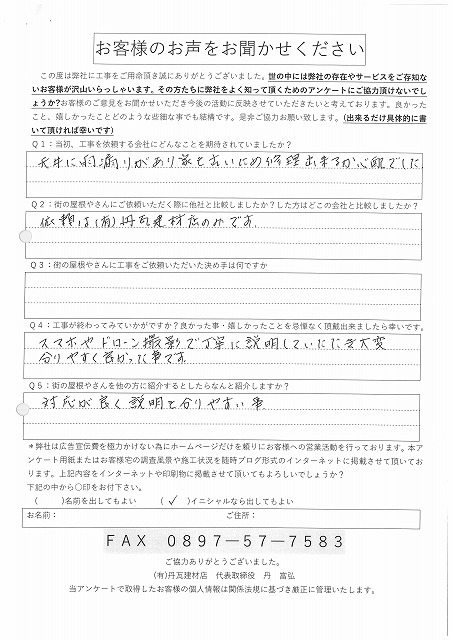 お客様のお声をお聞かせください
この度は弊社に工事をご用命頂き誠にありがとうございました。世の中には弊社の存在やサービスをご存知な
いお客様が沢山いらっしゃいます。その方たちに弊社をよく知って頂くためのアンケートにご協力頂けないでし
ょうか?お客様のご意見をお聞かせいただき今後の活動に反映させていただきたいと考えております。良かった
こと、嬉しかったことどのような些細な事でも結構です。是非ご協力お願い致します。(出来るだけ具体的に書
いて頂ければ幸いです)
Q1:当初、工事を依頼する会社にどんなことを期待されていましたか?
天井に雨漏りがあり家も古いため修理出来るか心配でした
Q2:街の屋根やさんにご依頼いただく際に他社と比較しましたか?した方はどこの会社と比較しましたか?
依頼は(有)丹瓦建材店のみです
Q3:街の屋根やさんに工事をご依頼いただいた決め手は何ですか
Q4:工事が終わってみていかがですか?良かった事・嬉しかったことを忌憚なく頂戴出来ましたら幸いです。
スマホやドローン撮影で丁寧に説明していただき大変
分りやすく良かった事です
Q5:街の屋根やさんを他の方に紹介するとしたらなんと紹介しますか?
対応が良く説明も分りやすい事
*弊社は広告宣伝費を極力かけない為にホームページだけを頼りにお客様への営業活動を行っております。本ア
ンケート用紙またはお客様宅の調査風景や施工状況を随時ブログ形式のインターネットに掲載させて頂いてお
ります。上記内容をインターネットや印刷物に掲載させて頂いてもよろしいでしょうか?
下記の中から〇印をお付下さい。
( )名前を出してもよい (✓)イニシャルなら出してもよい
お名前: ご住所:
FAX 0897-57-7583
ご協力ありがとうございました。
(有)丹瓦建材店 代表取締役 丹 富弘
当アンケートで取得したお客様の個人情報は関係法規に基づき厳正に管理いたします。